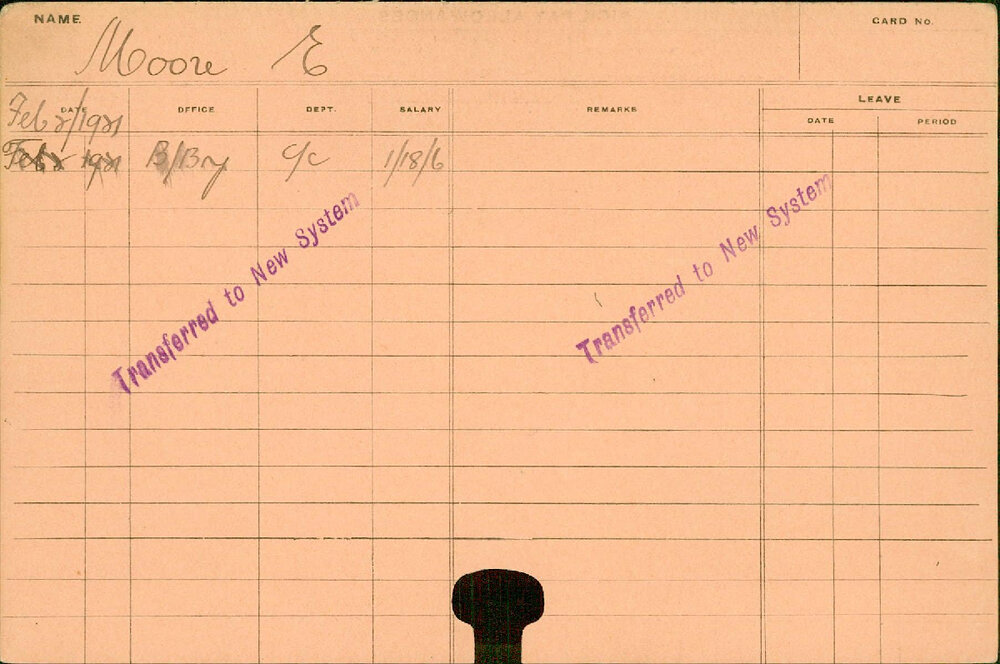 NAME.
CARD No.
Moore E
DATE
OFFICE
DEPT.
SALARY
REMARKS
LEAVE
DATE
PERIOD
Feb 2/1921
Feb 2 1921 B/Bry c/c 1/18/6
Transferred to New System
Transferred to New System